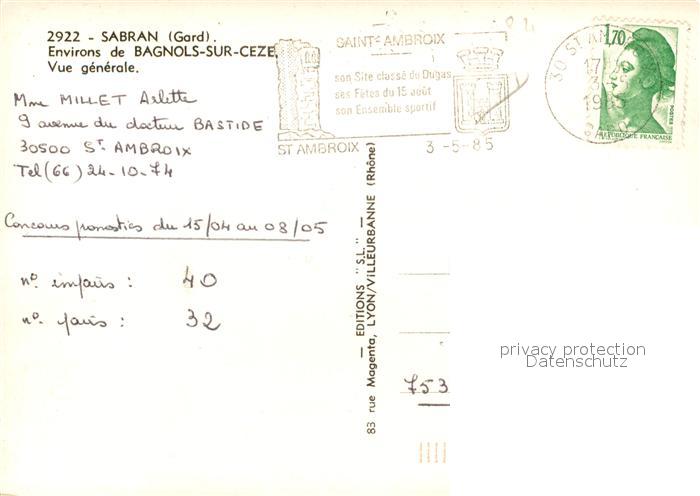 2922 - SABRAN (Gard).
Environs de BAGNOLS-SUR-CEZE.
Vue générale.
SAINT-AMBROIX
son Site classé du Dugas
ses Fêtes du 15 août
son Ensemble sportif
ST AMBROIX
3-5-85
30 ST AM
17
3
19
1,70
REPUBLIQUE FRANÇAISE
POSTES
Mme MILLET Arlette
9 avenue du docteur BASTIDE
30500 ST AMBROIX
Tel (66) 24-10-74
Concours pronostics du 15/04 au 08/05
n° impairs : 40
n° pairs : 32
— EDITIONS "S.L." —
83 rue Magenta, LYON/VILLEURBANNE (Rhône)
753
privacy protection
Datenschutz